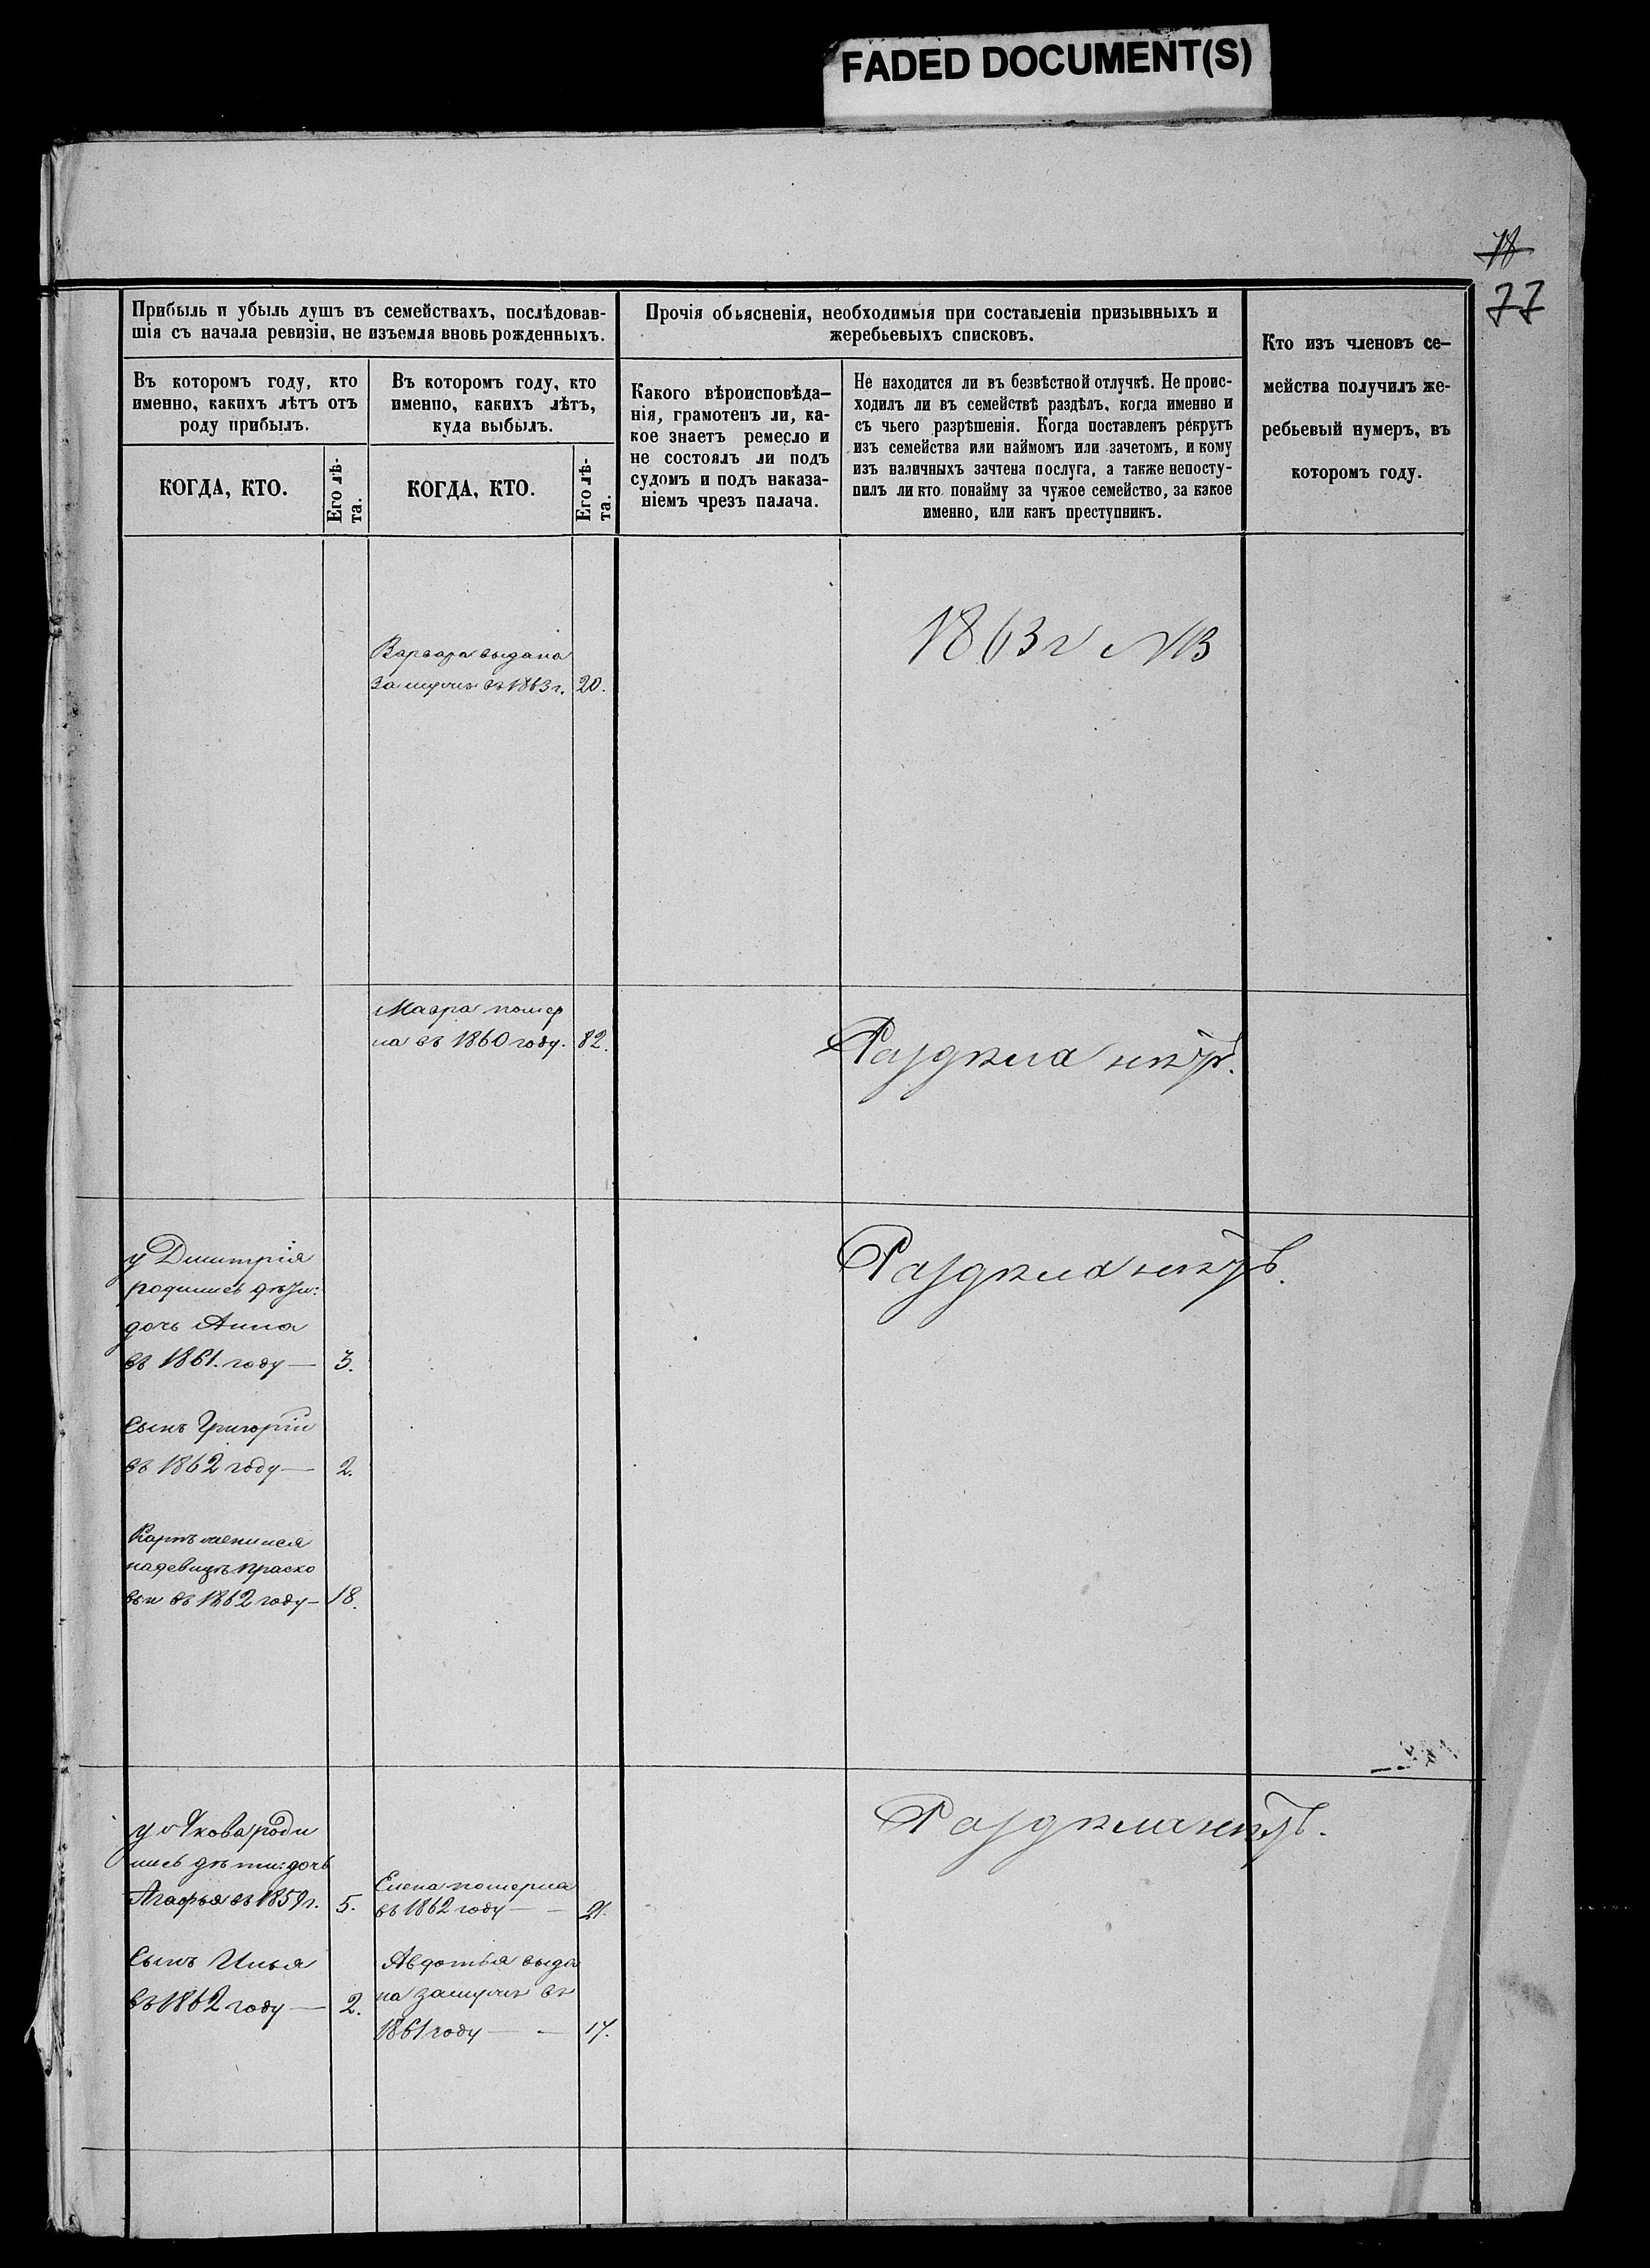 FADED DOCUMENT(S)
18
77
Прибыль и убыль душъ въ семействахъ, послѣдовав-
шія съ начала ревизіи, не изъемля вновь рожденныхъ.
Въ которомъ году, кто
именно, какихъ лѣтъ отъ
роду прибылъ.
КОГДА, КТО.
Его лѣ-
та.
Въ которомъ году, кто
именно, какихъ лѣтъ,
куда выбылъ.
КОГДА, КТО.
Его лѣ-
та.
Прочія объясненія, необходимыя при составленіи призывныхъ и
жеребьевыхъ списковъ.
Какого вѣроисповѣда-
нія, грамотенъ ли, ка-
кое знаетъ ремесло и
не состоялъ ли подъ
судомъ и подъ наказа-
ніемъ чрезъ палача.
Не находится ли въ безвѣстной отлучкѣ. Не проис-
ходилъ ли въ семействѣ раздѣлъ, когда именно и
съ чьего разрѣшенія. Когда поставленъ рекрутъ
изъ семейства или наймомъ или зачетомъ, и кому
изъ наличныхъ зачтена послуга, а также непосту-
пилъ ли кто понайму за чужое семейство, за какое
именно, или какъ преступникъ.
Кто изъ членовъ се-
мейства получилъ же-
ребьевый нумеръ, въ
которомъ году.
Варвара выдана
замужъ въ 1863 г. 20.
1863 г NB
Мавра помер
ла въ 1860 году. 82.
Раздѣла нѣтъ.
у Дмитрія
родились дѣти:
дочь Анна
въ 1861. году — 3.
Раздѣла нѣтъ.
Сынъ Григорій
въ 1862 году — 2.
Карпъ женился
надевицѣ Праско
вьи въ 1862 году — 18.
у Якова роди
лись дѣти: дочь
Агафья въ 1859 г. 5.
Сынъ Илья
въ 1862 году — 2.
Елена померла
въ 1862 году — — 21.
Авдотья выда
на замужъ въ
1861 году — — 17.
Раздѣла нѣтъ.